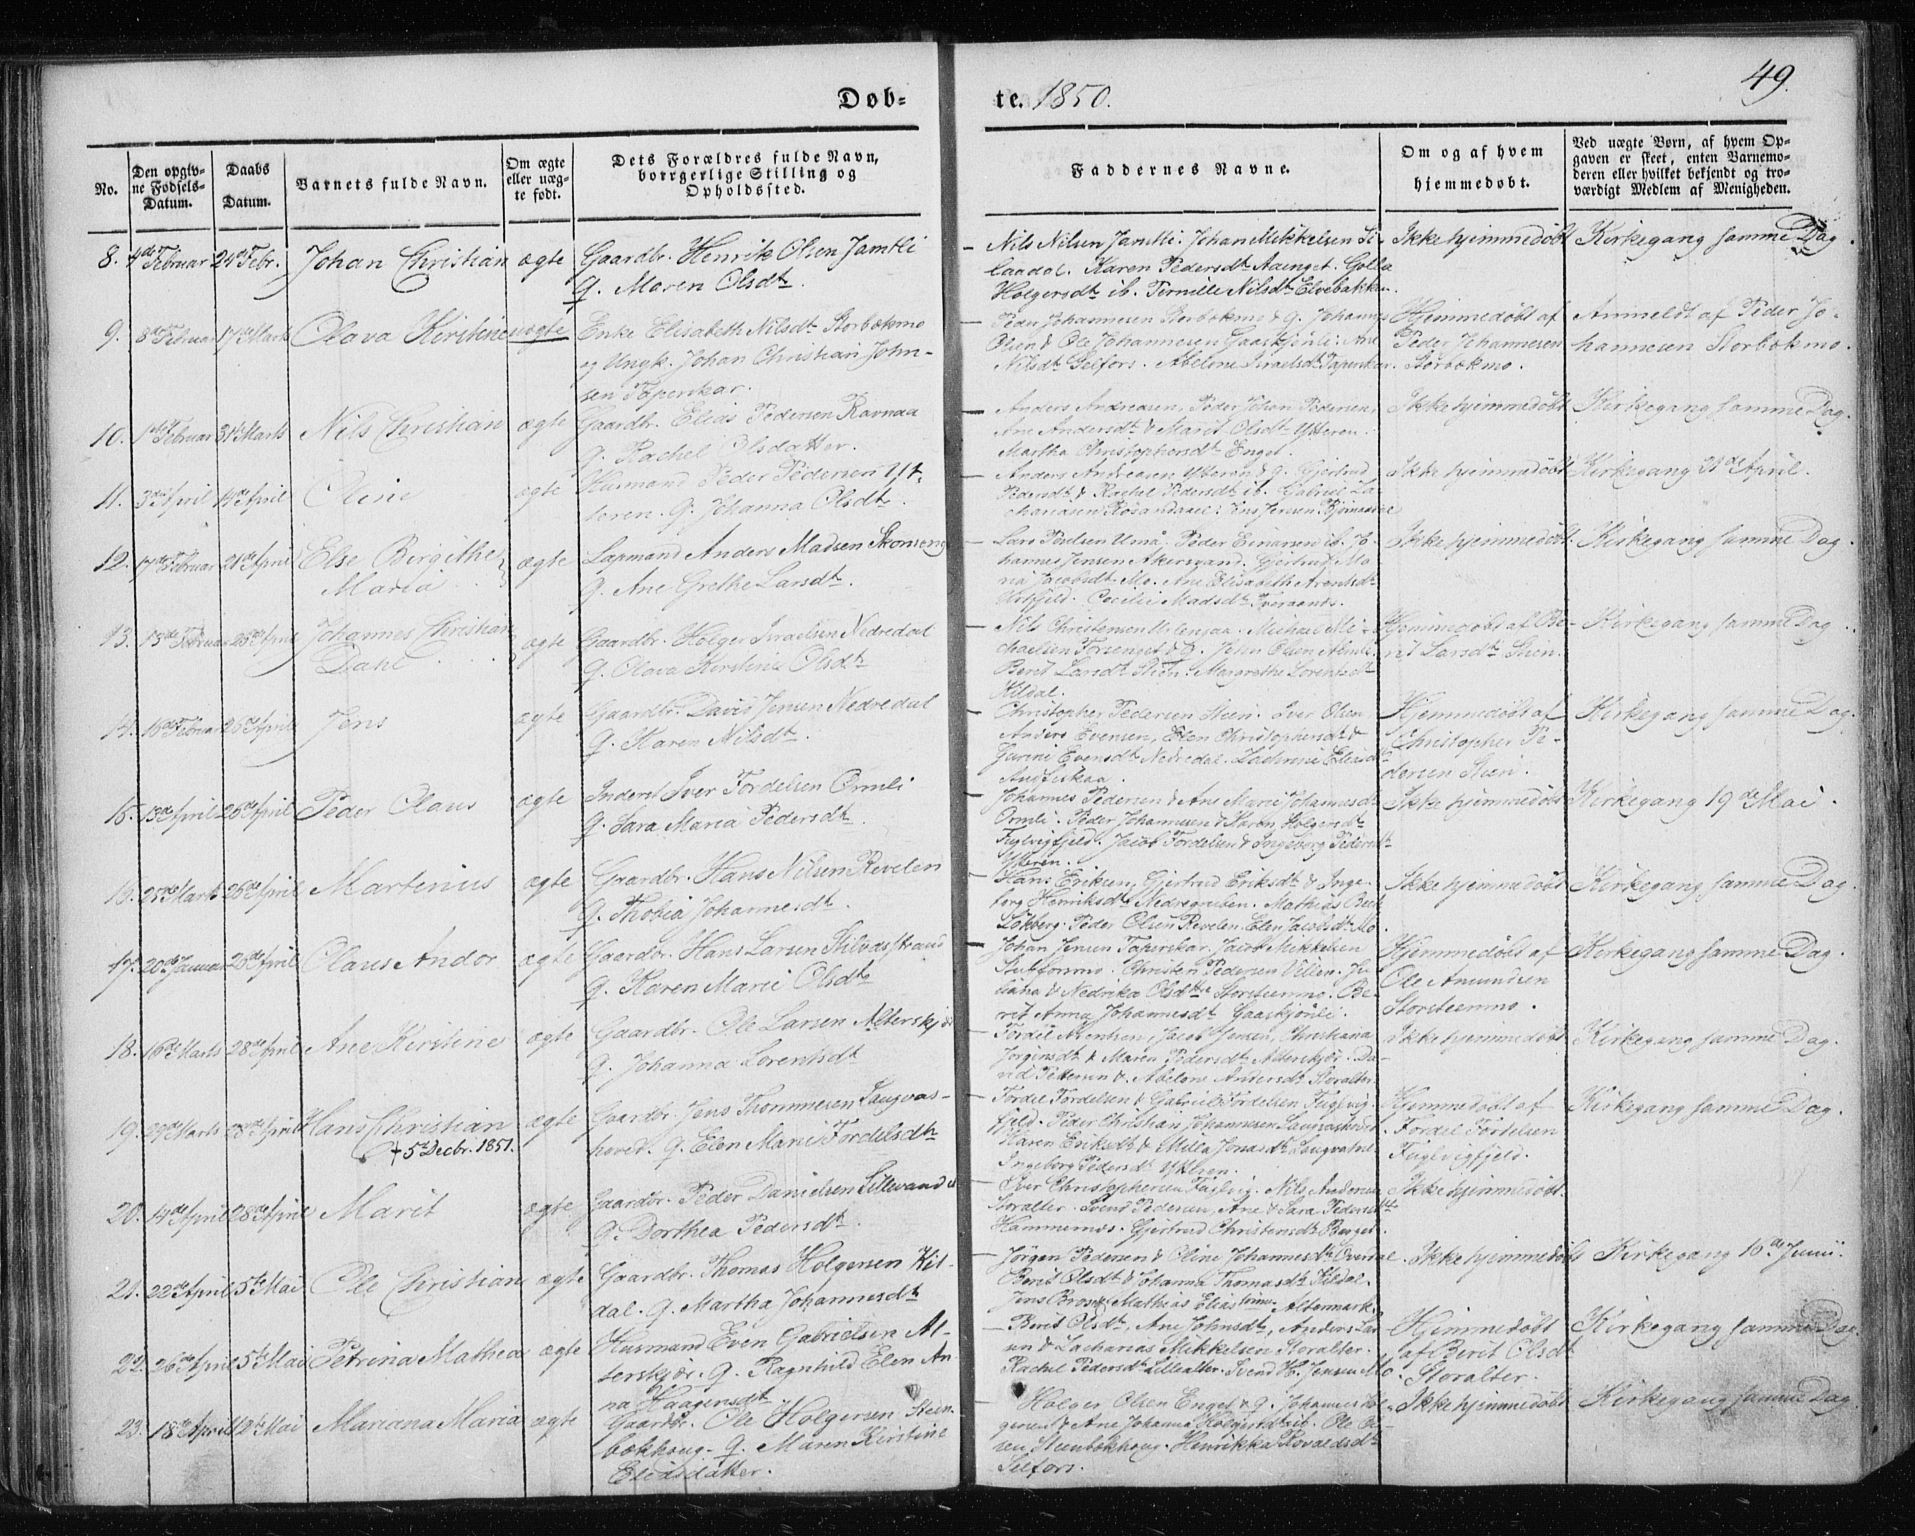 49.
Døb-
te. 1850.
No.
Den opgiv-
ne Fødsels-
Datum.
Daabs
Datum.
Barnets fulde Navn.
Om ægte
eller uæg-
te født.
Dets Forældres fulde Navn,
borrgerlige Stilling og
Opholdssted.
Faddernes Navne.
Om og af hvem
hjemmedøbt.
Ved uægte Børn, af hvem Op-
gaven er skeet, enten Barnemo-
deren eller hvilket bekjendt og tro-
værdigt Medlem af Menigheden.
8. 4de Februar 24de Febr. Johan Christian ægte
Gaardbr. Henrik Olsen Jamtli
Q. Maren Olsdtr.
Nils Nilsen Jamtli. Johan Mikkelsen Si-
laadal. Karen Pedersdtr Aaenget. Golla
Holgersdtr ib. Pernille Nilsdtr Elvebakken.
Ikke hjemmedøbt
Kirkegang samme Dag.
9. 8de Februar 17de Marts Olava Kirstine uægte
Enke Elisabeth Nilsdtr Storbækmo
og Ungk. Johan Christian John-
sen Taperskar.
Peder Johannesen Storbækmo & Q. Johannes
Olsen & Ole Johannesen Gaaskjønli. Ane
Nilsdtr Selfors. Abelone Israelsdtr Taperskar.
Hjemmedøbt af
Peder Johannesen
Storbækmo.
Anmeldt af Peder Jo-
hannesen Storbækmo.
10. 1ste Februar 31te Marts Nils Christian ægte
Gaardbr. Elias Pedersen Ravnaa
Q. Rachel Olsdatter.
Anders Andreasen, Peder Johan Pedersen,
Ane Andersdtr & Marit Olsdtr Ytteren.
Martha Christophersdtr Enget.
Ikke hjemmedøbt
Kirkegang samme Dag.
11. 3die April 14de April Oline ægte
Husmand Peder Pedersen Yt-
teren. Q. Johanna Olsdtr.
Anders Andreasen Ytteren & Q. Gjertrud
Pedersdtr & Rachel Pedersdtr ib. Gabriel Za-
chariasen Røsandaael. Jens Jensen
Ikke hjemmedøbt
Kirkegang 21de April.
12. 17de Februar 21de April Else Birgithe
Maria
ægte
Lapmand Anders Madsen
Q. Ane Grethe Larsdtr.
Lars Poulsen Umå. Peder Einarsen ib. Jo-
hannes Jensen Akersvand. Gjertrud Ma-
ria Jacobsdtr Mo. Ane Elisabeth Arentsdtr
Cecilie Madsdtr Tveraanes.
Ikke hjemmedøbt
Kirkegang samme Dag.
13. 13de Februar 26de April Johannes Christian
Dahl
ægte
Gaardbr. Holger Israelsen Nedredal
Q. Olava Kirstine Olsdtr
Nils Christensen Michael Mi-
chaelsen Forsenget & Q. John Olsen
Berit Larsdtr Steen. Margrethe Lorentsdtr
Kildal.
Hjemmedøbt af Be-
rit Larsdtr Steen.
Kirkegang samme Dag.
14. 16de Februar 26de April Jens ægte
Gaardbr. David Jensen Nedredal
Q. Karen Nilsdtr.
Christopher Pedersen Steen. Iver Olsen
Anders Evensen, Elen Christophersdtr &
Gurine Evensdtr Nedredal. Zachrina Eliasdtr
Andfiskaa.
Hjemmedøbt af
Christopher Pe-
dersen Steen.
Kirkegang samme Dag.
15. 13de April 26de April Peder Olaus ægte
Inderst Iver Fordelsen Ørmli
Q. Sara Maria Pedersdtr.
Johannes Pedersen & Ane Marie Johannesdtr
Ørmli. Peder Johannesen & Karen Holgersdtr
Fuglvigfjeld. Jacob Fordelsen & Ingeborg Pedersdtr
Ytteren.
Ikke hjemmedøbt
Kirkegang 19de Mai.
16. 25de Marts 26de April Martinus ægte
Gaardbr. Hans Nilsen Revelen
Q. Thobia Johannesdtr.
Hans Eriksen, Gjertrud Eriksdtr & Inge-
borg Henriksdtr Nedregruben. Mathias Bech
Løkberg. Peder Olsen Revelen. Elen Jacobsdtr Mo.
Ikke hjemmedøbt
Kirkegang samme Dag.
17. 20de Januar 28de April Olaus Andor ægte
Gaardbr. Hans Larsen Stilvasstrand
Q. Karen Marie Olsdtr
Johan Jensen Taperskar. Jacob Mikkelsen
Stubformo. Christen Pedersen Ju-
liana & Nedrika Olsdttre Storsteenmo. Be-
rit Anna Johannesdtr Gaaskjønli.
Hjemmedøbt af
Ole Amundsen
Storsteenmo.
Kirkegang samme Dag.
18. 16de Marts 28de April Ane Kirstine ægte
Gaardbr. Ole Larsen Alterskjær
Q. Johanna Lorentsdtr
Fordel Arentsen, Jacob Jensen, Christiana
Jørgensdtr & Maren Pedersdtr Alterskjær. Da-
vid Pettersen & Abelone Andersdtr Storalter.
Ikke hjemmedøbt
Kirkegang samme Dag.
19. 29de Marts 28de April Hans Christian
† 5te Decbr. 1851.
ægte
Gaardbr. Jens Thommesen Langvas-
hoved. Q. Elen Marie Fordelsdtr
Fordel Fordelsen & Gabriel Fordelsen Fuglvig-
fjeld. Peder Christian Johannesen Langvashoved
Karen Eriksdtr & Milla Jonasdtr
Ingeborg Pedersdtr Ytteren.
Hjemmedøbt af
Fordel Fordelsen
Fuglvigfjeld.
Kirkegang samme Dag.
20. 14de April 28de April Marit ægte
Gaardbr. Peder Danielsen Lillevand
Q. Dorthea Pedersdtr.
Iver Christophersen Fuglvig. Nils Andersen
Storalter. Svend Pedersen, Ane & Sara Pedersdttre
Hammernes. Gjertrud Christensdtr Berget.
Ikke hjemmedøbt.
21. 22de April 5te Mai Ole Christian ægte
Gaardbr. Thomas Holgersen Kil-
dal. Q. Martha Johannesdtr
Jørgen Pedersen & Oline Johannesdtr
Berit Olsdtr & Johanna Thomasdtr Kildal.
Jens Bros & Mathias Eliassen Altermark.
Ikke hjemmedøbt
Kirkegang 16de Junii.
22. 26de April 5te Mai Petrina Mathea ægte
Husmand Even Gabrielsen Al-
terskjær. Q. Ragnhild Elen An-
na Haagensdtr
Berit Olsdtr, Ane Johnsdtr, Anders Lar-
sen & Zacharias Mikkelsen Storalter.
Rachel Pedersdtr Lillealter. Svend H. Jensen Mo.
Hjemmedøbt
af Berit Olsdtr
Storalter.
Kirkegang samme Dag.
23. 18de April 12te Mai Mariana Maria ægte
Gaardbr. Ole Holgersen Steen-
bækhoug. Q. Maren Kirstine
Eliasdatter.
Holger Olsen Enget & Q. Johannes Hol-
gersen & Ane Johanna Holgersdtr ib. Ole Ol-
sen Steenbækhoug. Henrikka Rovaldsdtr
Selfors.
Ikke hjemmedøbt
Kirkegang samme Dag.